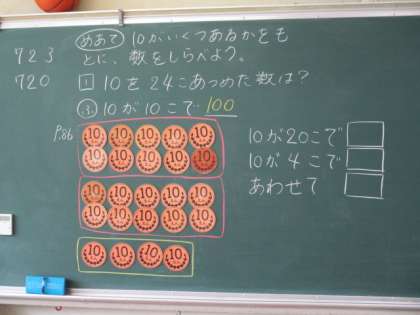 めあて 10がいくつあるかをも
とに、数をしらべよう。
723
720
1 10を24こあつめた数は?
ふ 10が10こで 100
P.86
10 10 10 10 10
10 10 10 10 10
10 10 10 10 10
10 10 10 10 10
10 10 10 10
10が20こで
10が4こで
あわせて